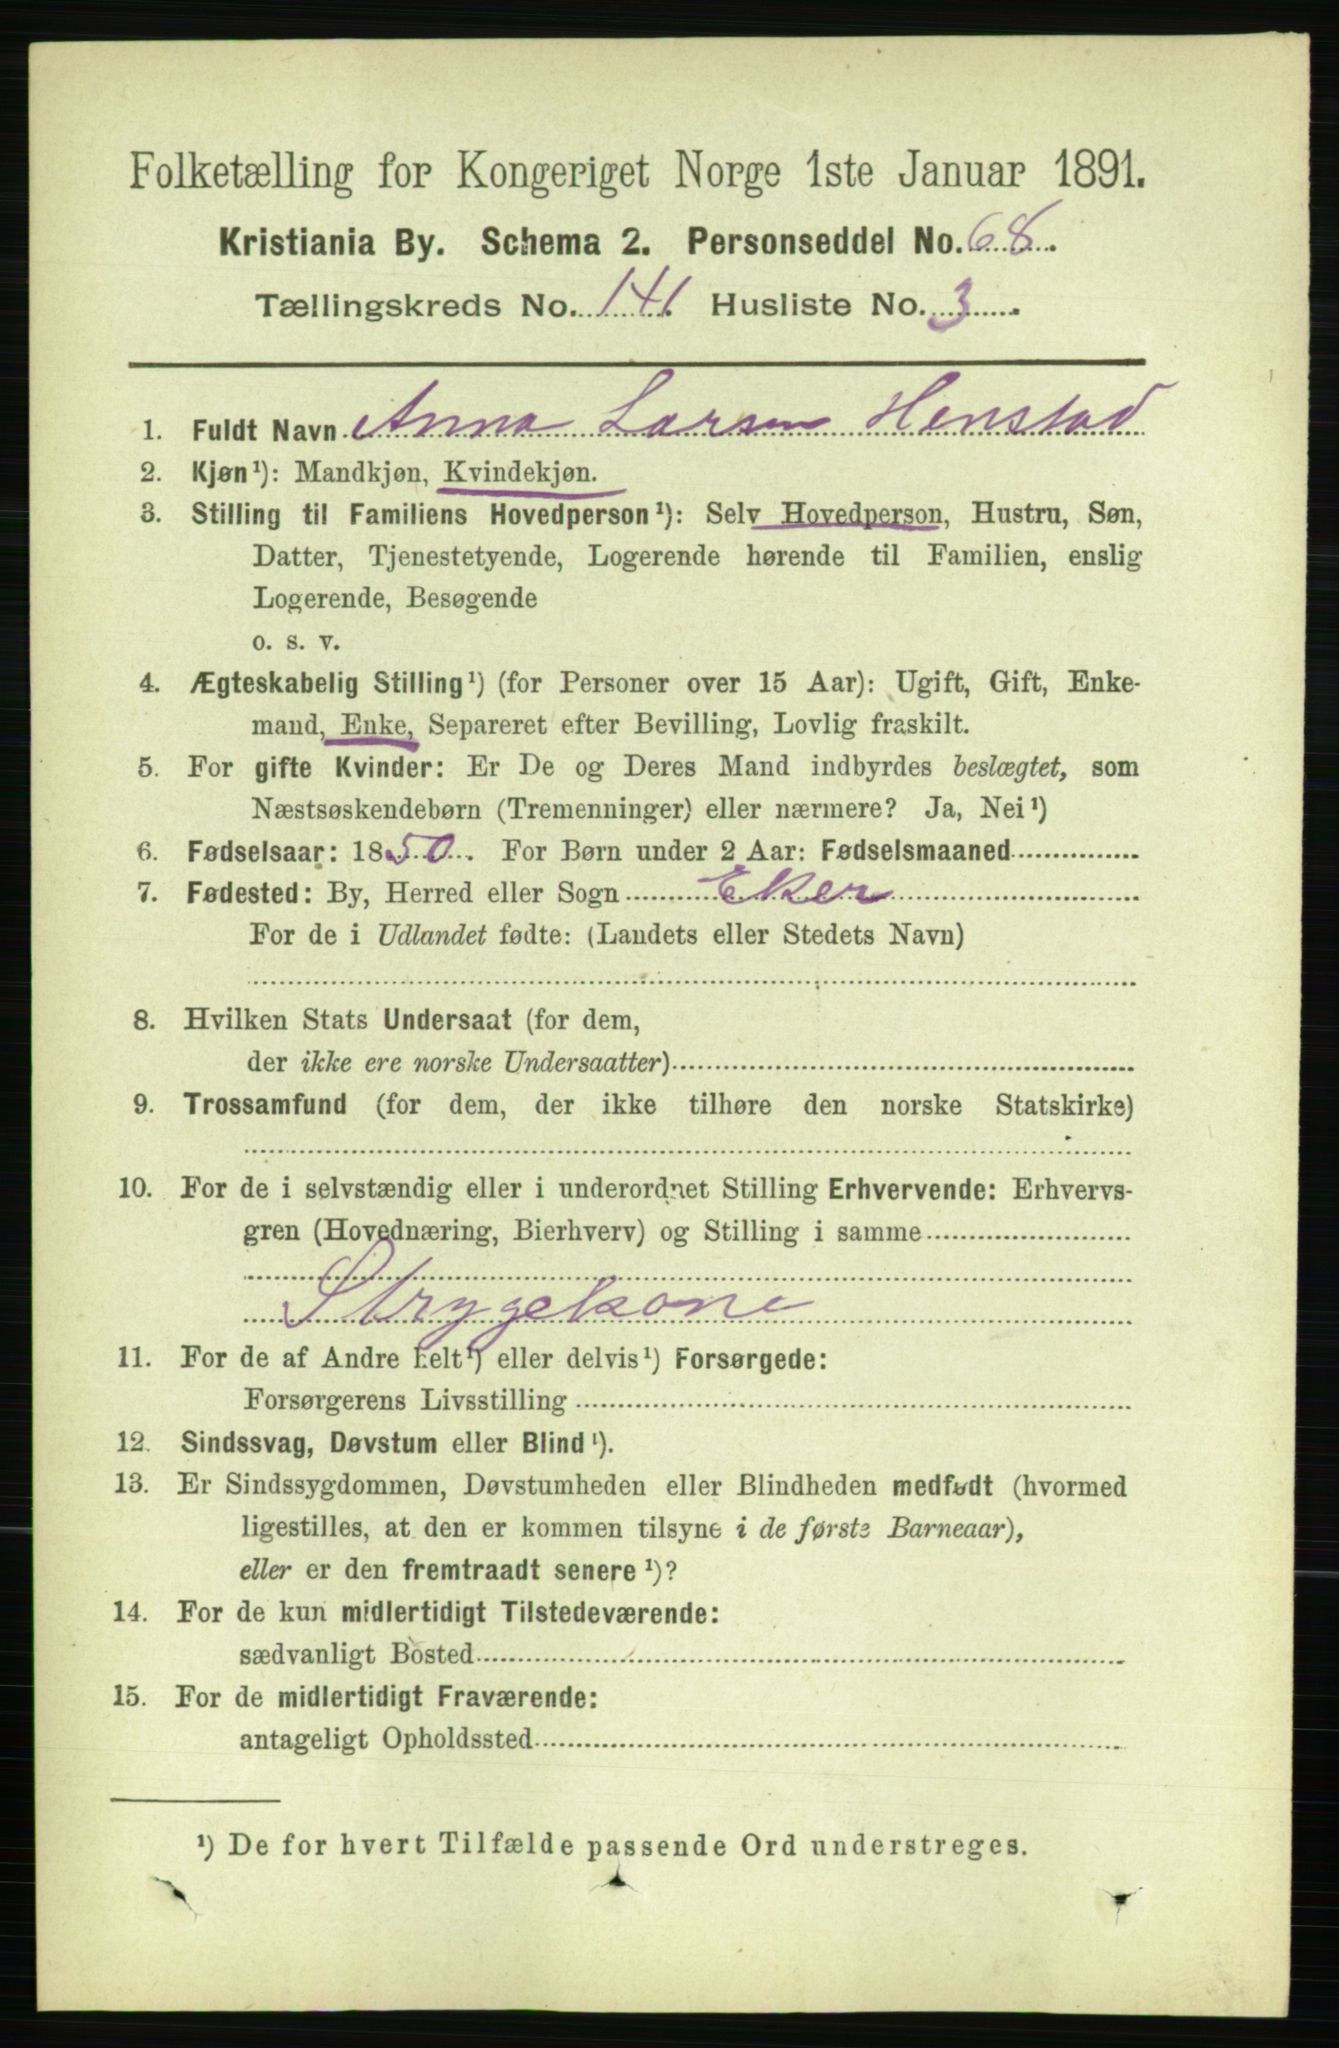 Folketælling for Kongeriget Norge 1ste Januar 1891.
Kristiania By. Schema 2. Personseddel No. 68.
Tællingskreds No. 141. Husliste No. 3.
1. Fuldt Navn Anna Larsen Henstad
2. Kjøn¹): Mandkjøn, Kvindekjøn.
3. Stilling til Familiens Hovedperson¹): Selv Hovedperson, Hustru, Søn,
Datter, Tjenestetyende, Logerende hørende til Familien, enslig
Logerende, Besøgende
o. s. v.
4. Ægteskabelig Stilling¹) (for Personer over 15 Aar): Ugift, Gift, Enke-
mand, Enke, Separeret efter Bevilling, Lovlig fraskilt.
5. For gifte Kvinder: Er De og Deres Mand indbyrdes beslægtet, som
Næstsøskendebørn (Tremenninger) eller nærmere? Ja, Nei¹)
6. Fødselsaar: 1850. For Børn under 2 Aar: Fødselsmaaned
7. Fødested: By, Herred eller Sogn Eker
For de i Udlandet fødte: (Landets eller Stedets Navn)
8. Hvilken Stats Undersaat (for dem,
der ikke ere norske Undersaatter)
9. Trossamfund (for dem, der ikke tilhøre den norske Statskirke)
10. For de i selvstændig eller i underordnet Stilling Erhvervende: Erhvervs-
gren (Hovednæring, Bierhverv) og Stilling i samme
Strygekone
11. For de af Andre helt¹) eller delvis¹) Forsørgede:
Forsørgerens Livsstilling
12. Sindssvag, Døvstum eller Blind¹).
13. Er Sindssygdommen, Døvstumheden eller Blindheden medfødt (hvormed
ligestilles, at den er kommen tilsyne i de første Barneaar),
eller er den fremtraadt senere¹)?
14. For de kun midlertidigt Tilstedeværende:
sædvanligt Bosted
15. For de midlertidigt Fraværende:
antageligt Opholdssted
¹) De for hvert Tilfælde passende Ord understreges.